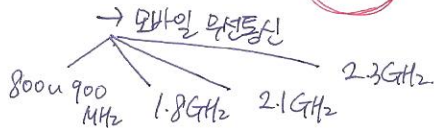 → 모바일 무선통신
800~900 MHz 1.8GHz 2.1GHz 2.3GHz